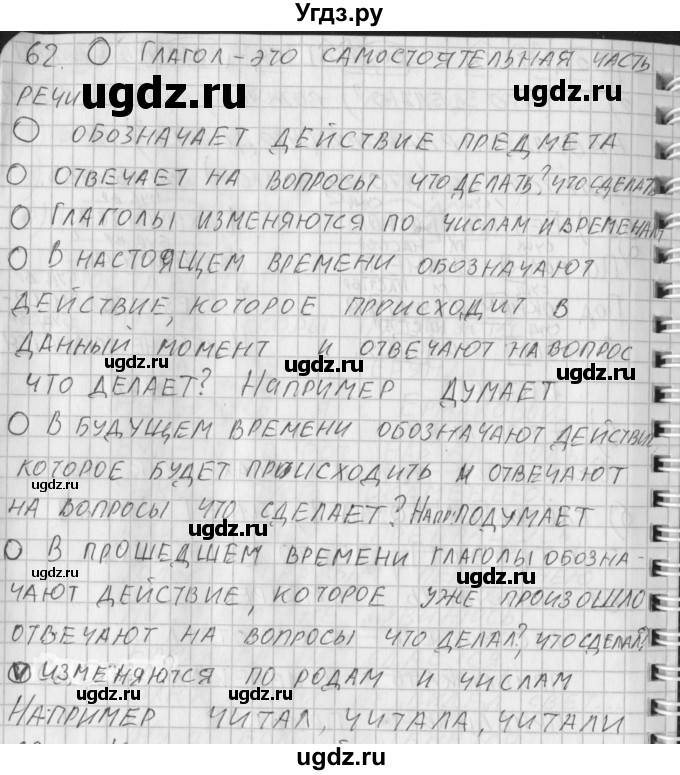 Угдз.ру
62. О ГЛАГОЛ - ЭТО САМОСТОЯТЕЛЬНАЯ ЧАСТЬ
РЕЧИ
ugdz.ru ugdz.ru
О ОБОЗНАЧАЕТ ДЕЙСТВИЕ ПРЕДМЕТА
О ОТВЕЧАЕТ НА ВОПРОСЫ ЧТО ДЕЛАТЬ? ЧТО СДЕЛАТЬ
О ГЛАГОЛЫ ИЗМЕНЯЮТСЯ ПО ЧИСЛАМ И ВРЕМЕНАМ
О В НАСТОЯЩЕМ ВРЕМЕНИ ОБОЗНАЧАЮТ
ugdz.ru
ДЕЙСТВИЕ, КОТОРОЕ ПРОИСХОДИТ В
ДАННЫЙ МОМЕНТ И ОТВЕЧАЮТ НА ВОПРОС
ugdz.ru ugdz.ru ugdz.ru
ЧТО ДЕЛАЕТ? НАПРИМЕР ДУМАЕТ
О В БУДУЩЕМ ВРЕМЕНИ ОБОЗНАЧАЮТ ДЕЙСТВИЕ
ugdz.ru
КОТОРОЕ БУДЕТ ПРОИСХОДИТЬ И ОТВЕЧАЮТ
ugdz.ru
НА ВОПРОСЫ ЧТО СДЕЛАЕТ? НАПР: ПОДУМАЕТ
ugdz.ru
О В ПРОШЕДШЕМ ВРЕМЕНИ ГЛАГОЛЫ ОБОЗНА-
ugdz.ru ugdz.ru
ЧАЮТ ДЕЙСТВИЕ, КОТОРОЕ УЖЕ ПРОИЗОШЛО
ugdz.ru
ОТВЕЧАЮТ НА ВОПРОСЫ ЧТО ДЕЛАЛ?, ЧТО СДЕЛАЛ?
ugdz.ru
ИЗМЕНЯЮТСЯ ПО РОДАМ И ЧИСЛАМ
ugdz.ru ugdz.ru
НАПРИМЕР ЧИТАЛ, ЧИТАЛА, ЧИТАЛИ
ugdz.ru
ugdz.ru